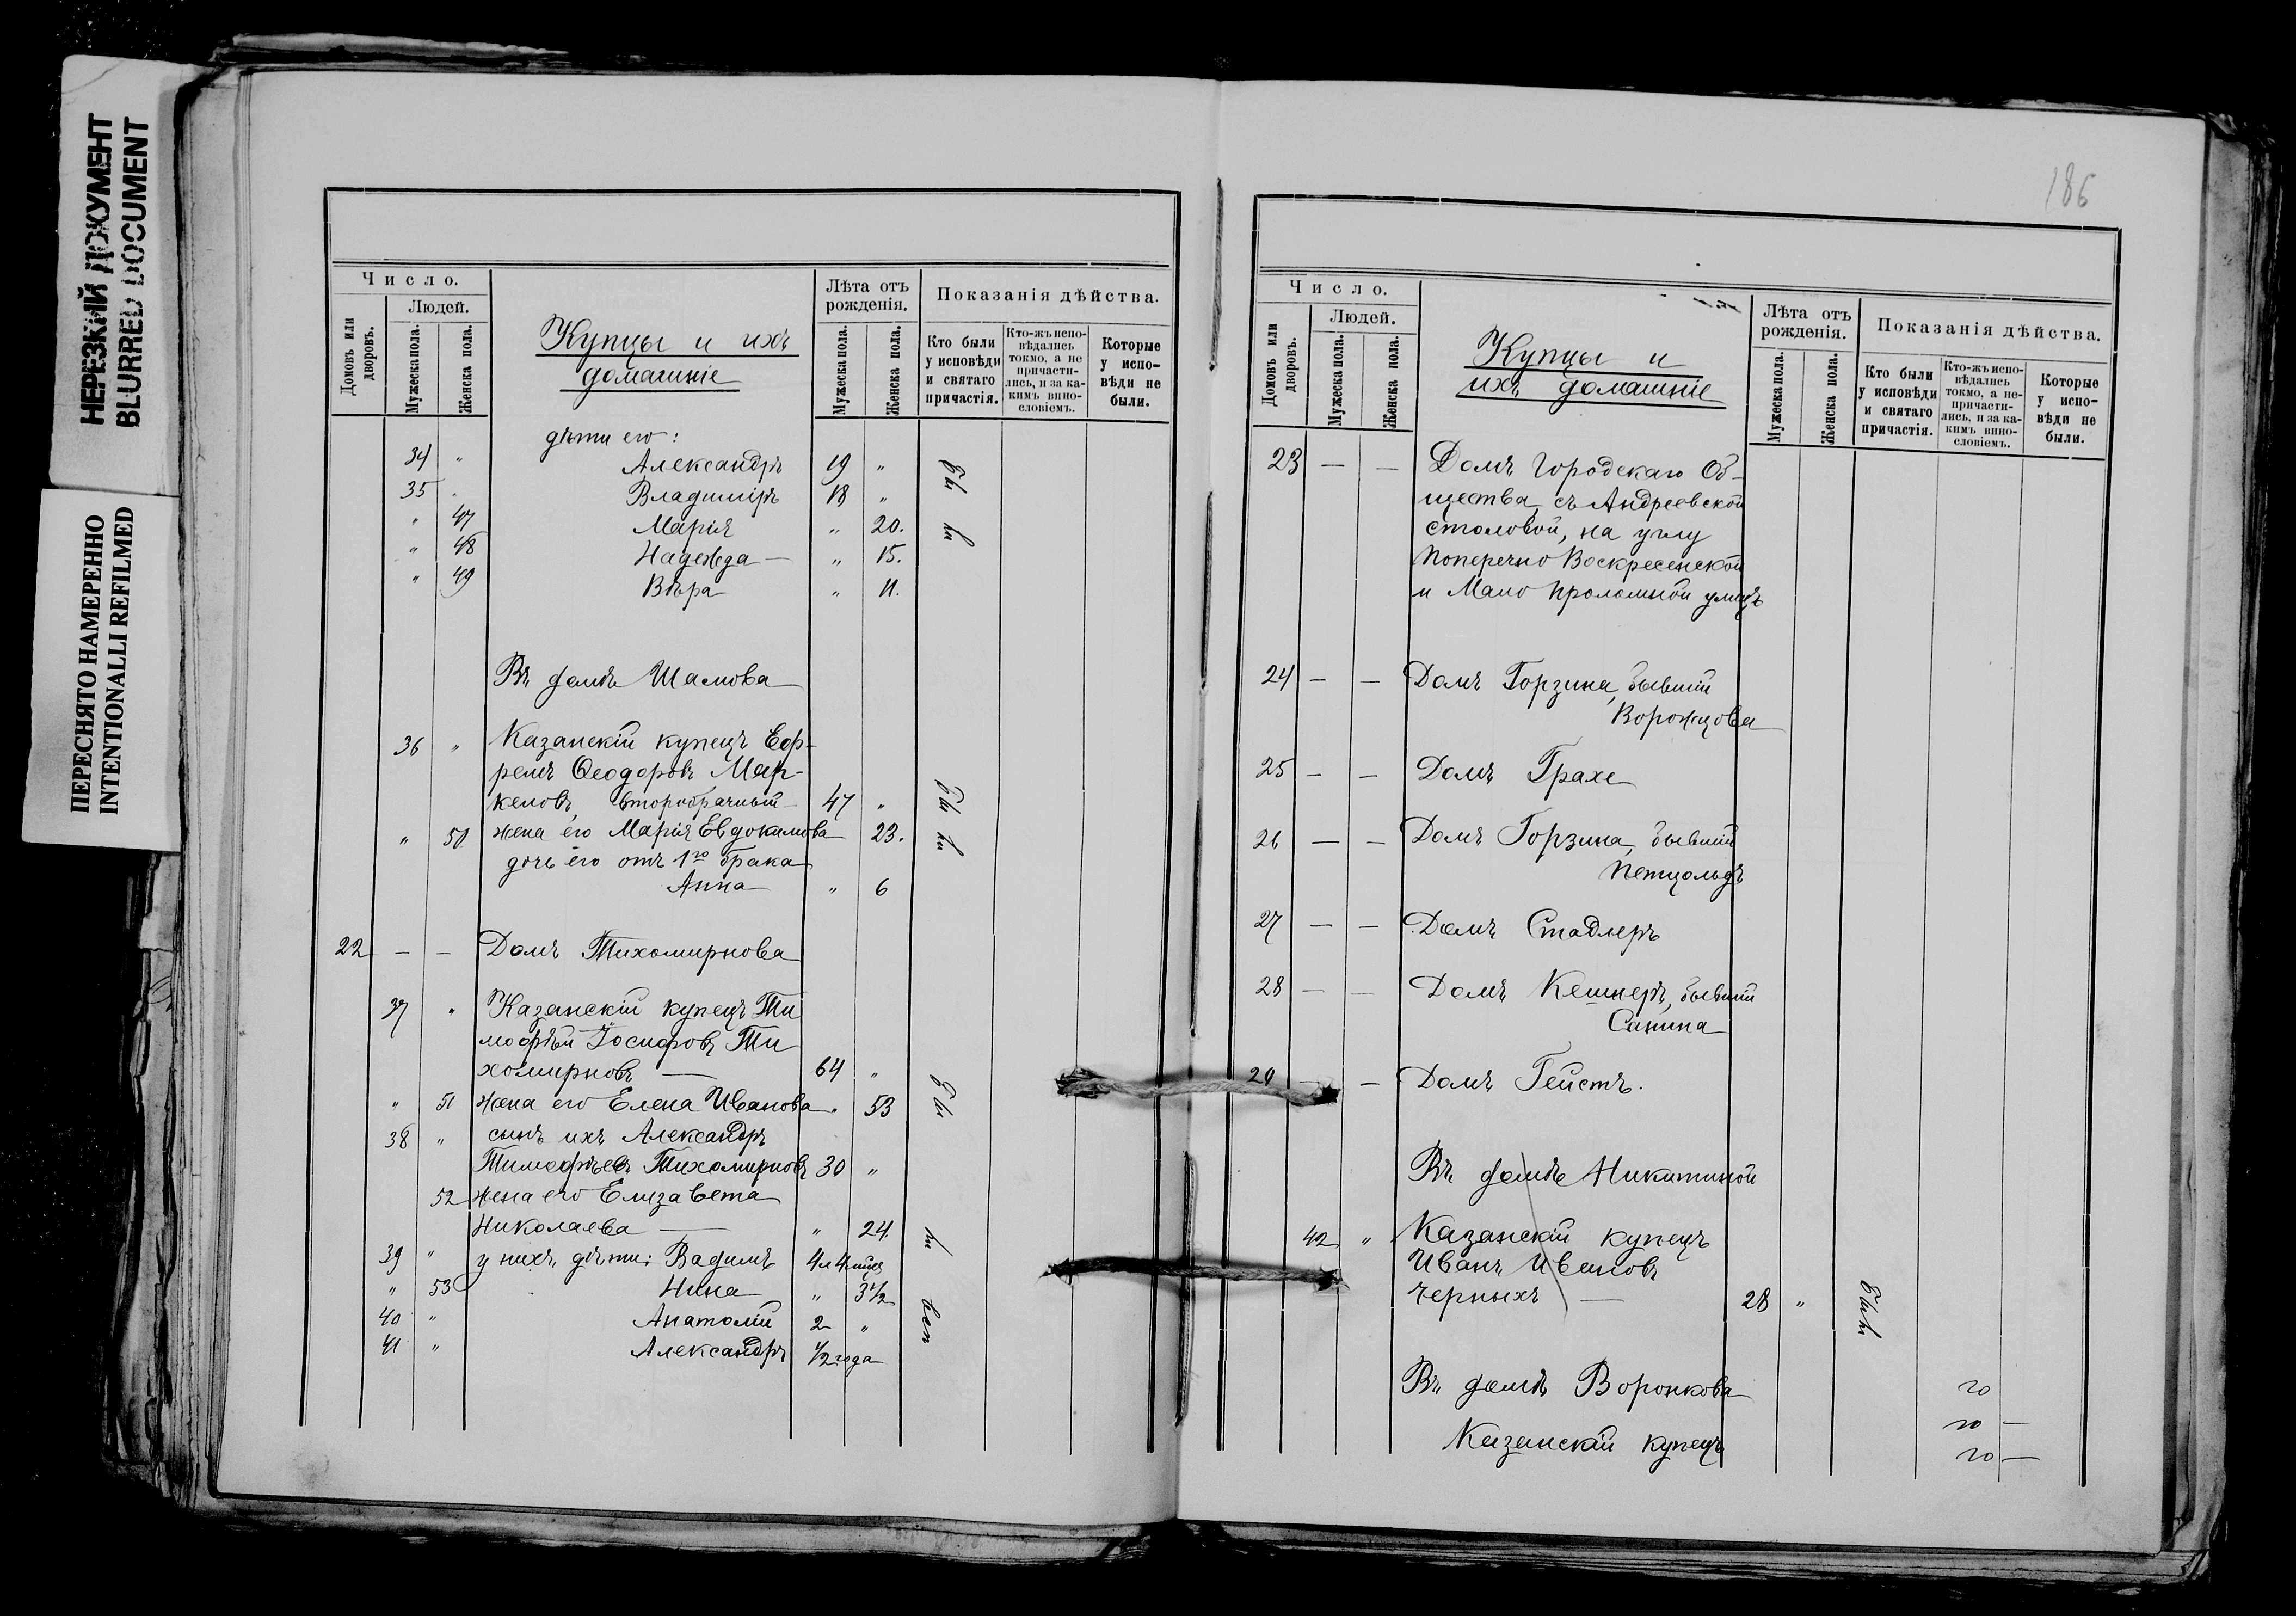 НЕРЕЗКИЙ ДОКУМЕНТ
BLURRED DOCUMENT
ПЕРЕСНЯТО НАМЕРЕННО
INTENTIONALLI REFILMED
Число.
Людей.
Домовъ или дворовъ.
Мужеска пола.
Женска пола.
Купцы и ихъ
домашніе
Лѣта отъ
рожденія.
Мужеска пола.
Женска пола.
Показанія дѣйства.
Кто были
у исповѣди
и святаго
причастія.
Кто-жъ испо-
вѣдались
токмо, а не
причасти-
лись, и за ка-
кимъ вино-
словіемъ.
Которые
у испо-
вѣди не
были.
дѣти его:
34 " Александръ 19 "
35 " Владиміръ 18 "
" 47 Марія " 20.
" 48 Надежда — " 15.
" 49 Вѣра " 11.
Въ домѣ Шамова
36 " Казанскій купецъ Еф-
ремъ Ѳеодоровъ Мар-
келовъ, второбрачный 47 "
" 50 жена его Марія Евдокимова 23.
дочь его отъ 1го брака
Анна " 6
22 — — Домъ Тихомирнова
37 " Казанскій купецъ Ти
мофѣй Іосифовъ Ти
хомирновъ — 64 "
" 51 жена его Елена Иванова " 53
38 " сынъ ихъ Александръ
Тимофѣевъ Тихомирновъ 30 "
52 жена его Елизавета
Николаева — " 24
39 " у нихъ дѣти: Вадимъ 4 л 4 мѣц
" 53 Нина " 3½
40 " Анатолій 2 "
41 " Александръ ½ года
бы
ли
бы ли
бы
ли
всп
186
Число.
Людей.
Домовъ или дворовъ.
Мужеска пола.
Женска пола.
Купцы и
ихъ домашніе
Лѣта отъ
рожденія.
Мужеска пола.
Женска пола.
Показанія дѣйства.
Кто были
у исповѣди
и святаго
причастія.
Кто-жъ испо-
вѣдались
токмо, а не-
причасти-
лись, и за ка-
кимъ вино-
словіемъ.
Которые
у испо-
вѣди не
были.
23 — — Домъ Городскаго Об-
щества, съ Андреевской
столовой, на углу
Поперечно Воскресенской
и Мало Проломной улицъ
24 — — Домъ Горзина, бывшій
Ворожцова
25 — — Домъ Грахе
26 — — Домъ Горзина, бывшій
Петцольдъ
27 — — Домъ Стадлеръ
28 — — Домъ Кешнеръ, бывшій
Санина
29 — Домъ Гейстъ.
Въ домѣ Никитиной
42 " Казанскій купецъ
Иванъ Ивановъ
Черныхъ — 28 "
были
Въ домѣ Воронкова
Казанскій купецъ